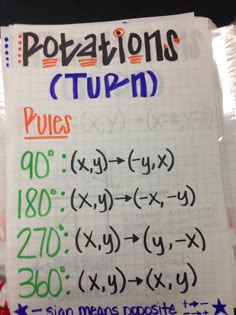 Rotations
(TURN)
Rules
90°: (x,y)→(-y,x)
180°: (x,y)→(-x,-y)
270°: (x,y)→(y,-x)
360°: (x,y)→(x,y)
- sign means opposite +→-